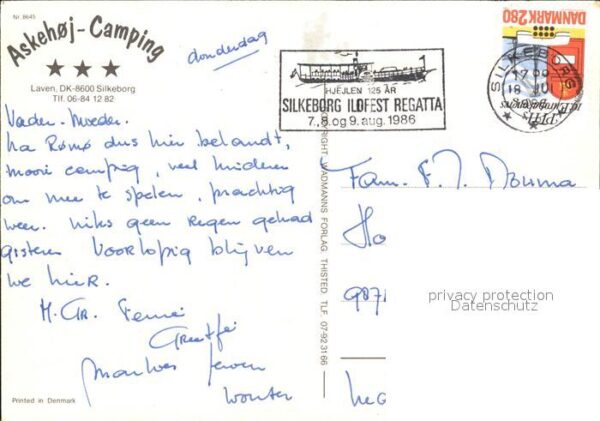 Nr. 8645
Askehøj-Camping
Laven, DK-8600 Silkeborg
Tlf. 06-84 12 82
donderdag
Vader. Moeder.
Na Rømø dus hier belandt,
mooi camping, veel kinderen
om mee te spelen, prachtig
weer. niks geen regen gehad
gisteren Voorlopig blijven
we hier.
M. Gr.
Printed in Denmark
COPYRIGHT WADMANNS FORLAG THISTED TLF 07-92 31 66
HJEJLEN 125 ÅR
SILKEBORG ILDFEST REGATTA
7., 8. og 9. aug. 1986
DANMARK 280
SILKEBORG
17.00
18
1986
Fam. F. J. Douma
Ho
987
Ne
privacy protection
Datenschutz
Wouter